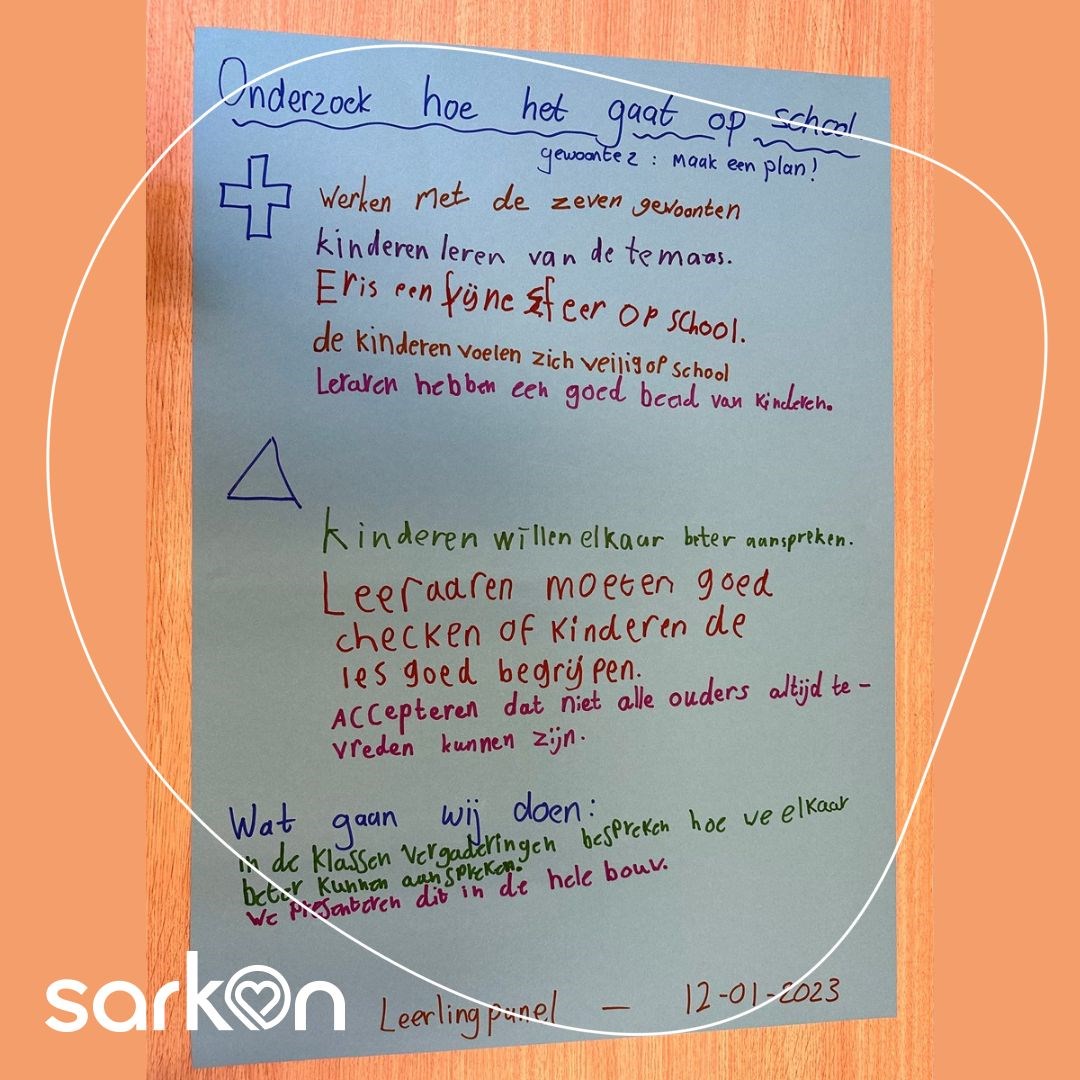 Onderzoek hoe het gaat op school
gewoonte 2 : Maak een plan!
Werken met de zeven gewoonten
kinderen leren van de temaas.
Er is een fijne sfeer op school.
de kinderen voelen zich veilig op school
Leraren hebben een goed beeld van kinderen.
kinderen willen elkaar beter aanspreken.
Leeraaren moeten goed
checken of kinderen de
les goed begrijpen.
Accepteren dat niet alle ouders altijd te-
vreden kunnen zijn.
Wat gaan wij doen:
in de klassen vergaderingen bespreken hoe we elkaar
beter kunnen aanspreken.
We presenteren dit in de hele bouw.
Leerlingpanel - 12-01-2023
sarkon